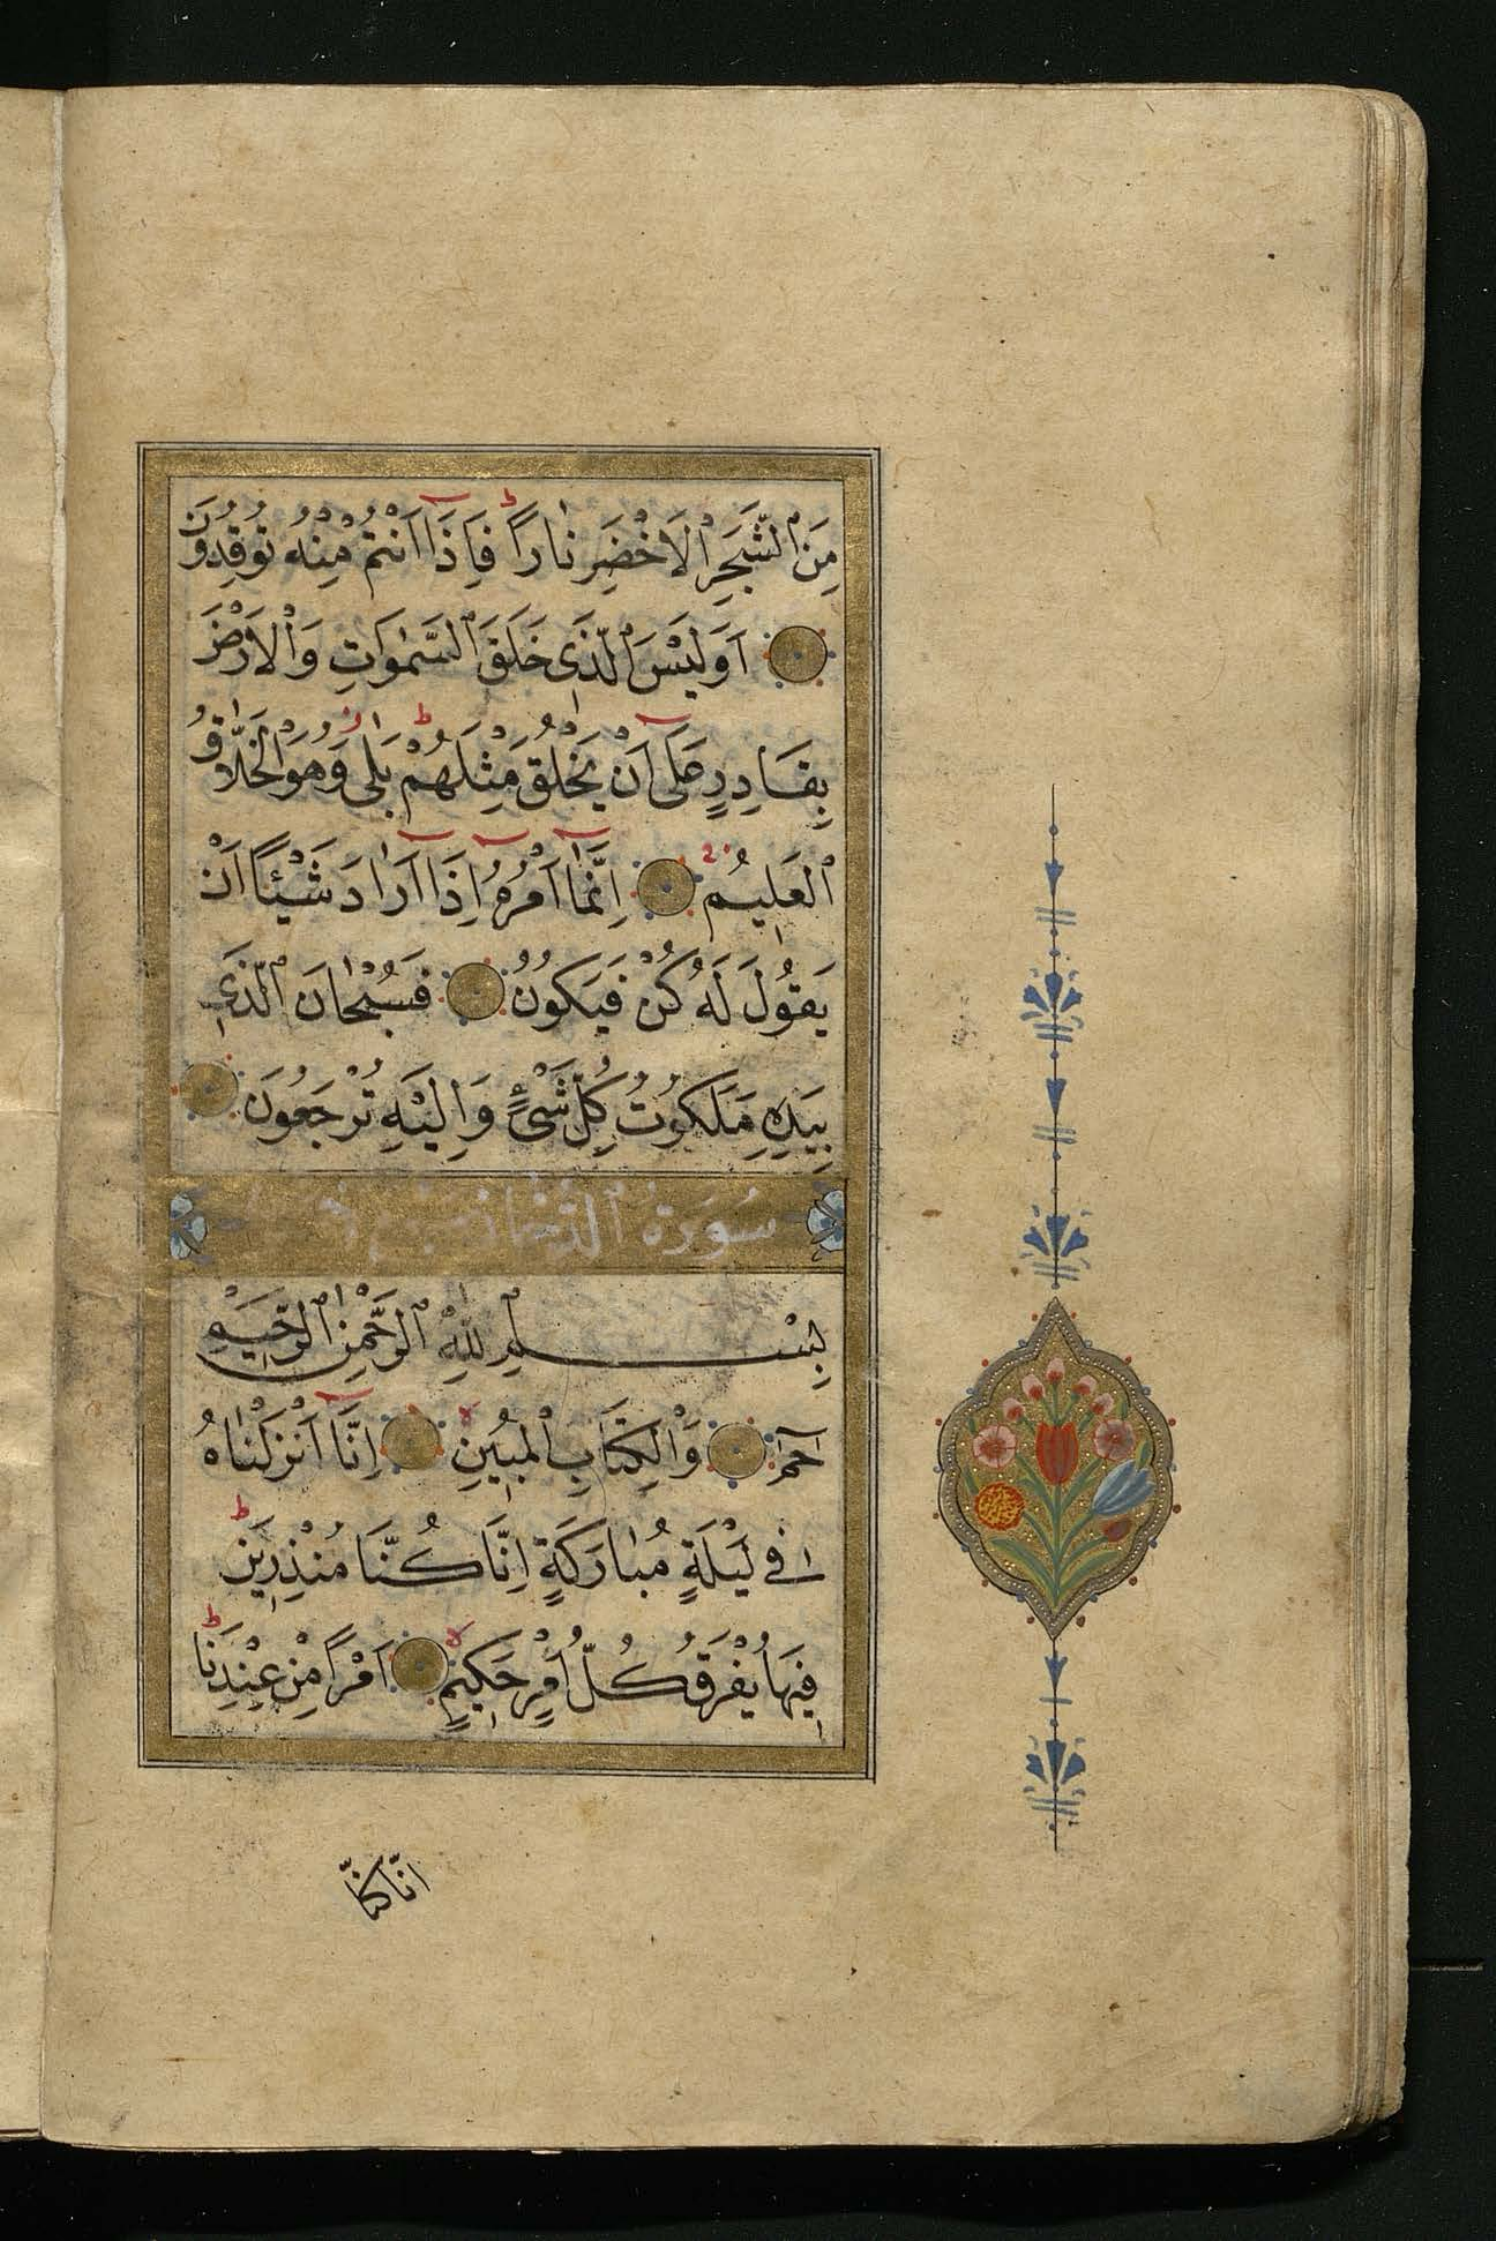 مِنَ ٱلشَّجَرِ ٱلْاَخْضَرِ نَارًا ط فَاِذَٓا اَنْتُمْ مِنْهُ تُوقِدُونَ
اَوَلَيْسَ ٱلَّذِى خَلَقَ ٱلسَّمٰوَاتِ وَٱلْاَرْضَ
بِقَادِرٍ عَلَٓى اَنْ يَخْلُقَ مِثْلَهُمْ ط بَلٰى ز وَهُوَ ٱلْخَلَّاقُ
ٱلْعَلِيمُ اِنَّمَٓا اَمْرُهُٓ اِذَٓا اَرَادَ شَيْئًا اَنْ
يَقُولَ لَهُ كُنْ فَيَكُونُ فَسُبْحَانَ ٱلَّذِى
بِيَدِهِ مَلَكُوتُ كُلِّ شَىْءٍ وَاِلَيْهِ تُرْجَعُونَ
سُورَةُ ٱلدُّخَانِ
بِسْمِ ٱللّٰهِ ٱلرَّحْمٰنِ ٱلرَّحِيمِ
حٰمٓ وَٱلْكِتَابِ ٱلْمُبِينِ لا اِنَّٓا اَنْزَلْنَاهُ
فِى لَيْلَةٍ مُبَارَكَةٍ اِنَّا كُنَّا مُنْذِرِينَ ط
فِيهَا يُفْرَقُ كُلُّ اَمْرٍ حَكِيمٍ لا اَمْرًا مِنْ عِنْدِنَا ط
انّا كنّا